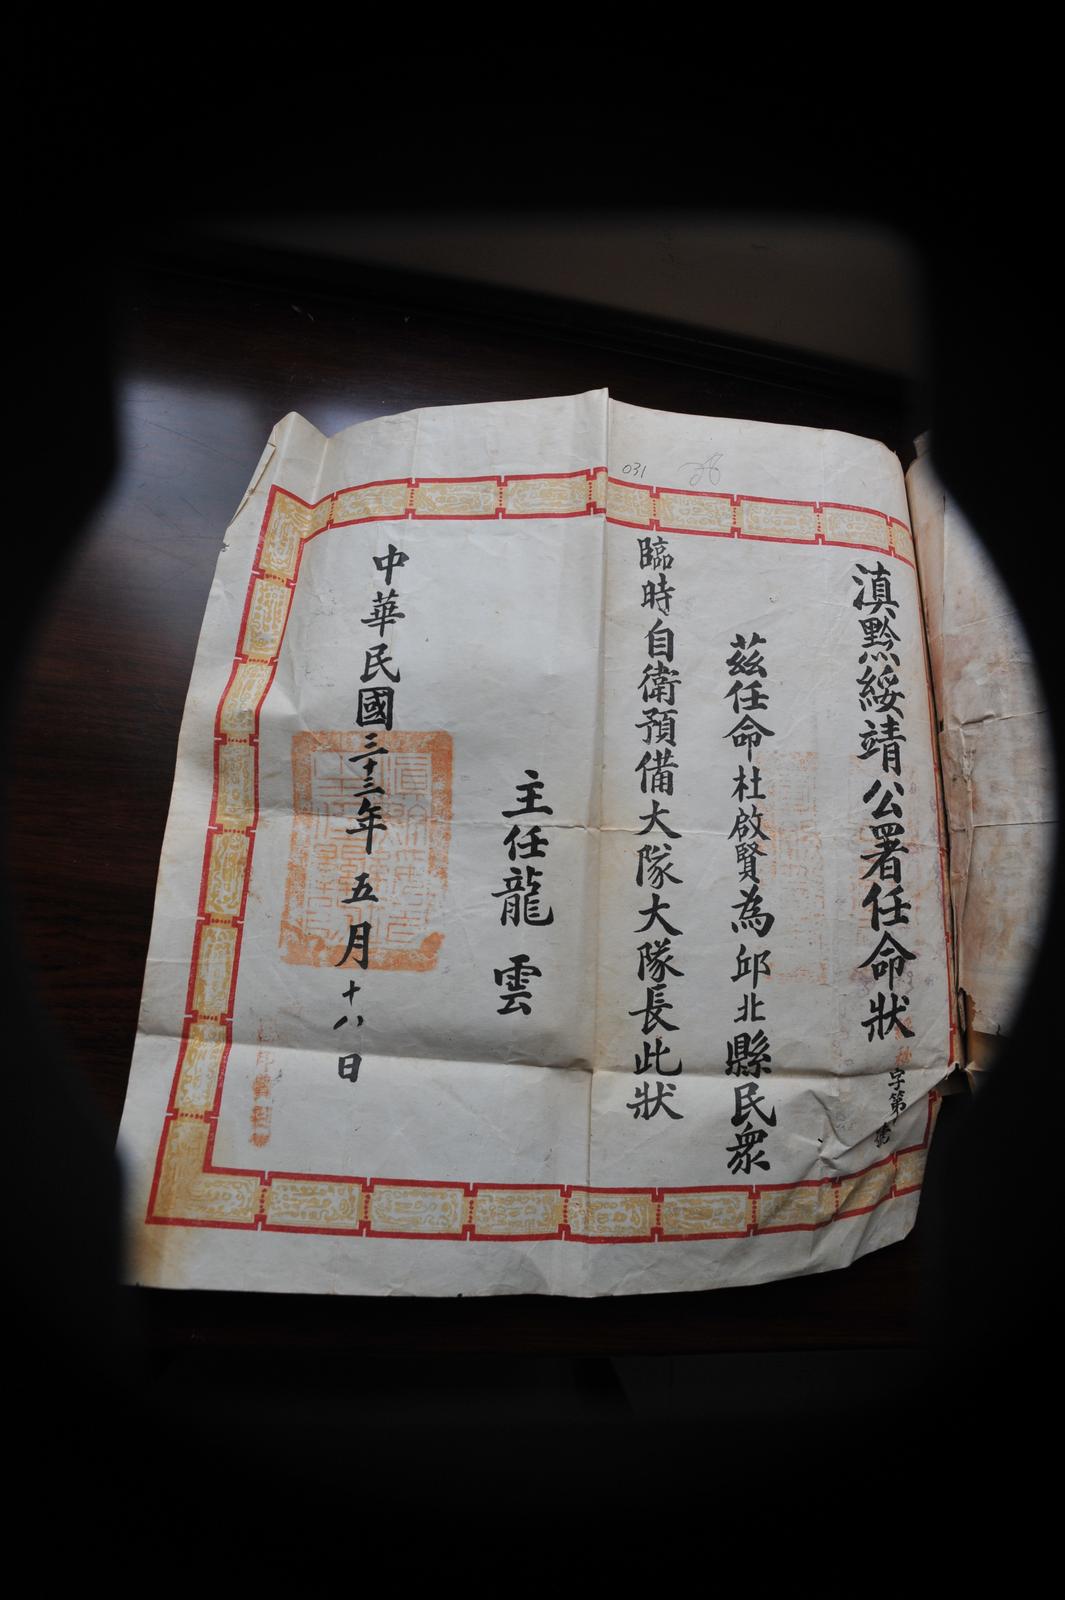 滇黔綏靖公署任命狀
字第
號
茲任命杜啟賢為邱北縣民衆
臨時自衛預備大隊大隊長此狀
主任龍雲
中華民國三十三年五月十八日
031